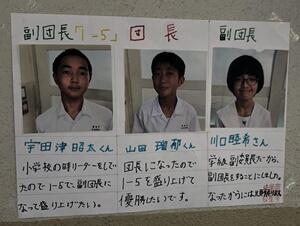 副団長「1-5」
団長
副団長
宇田津 昭太くん
小学校の時リーダーをして
たので1-5で、副団長に
なって盛り上げたい。
山田 瑠郁くん
団長になったので
1-5を盛り上げて
優勝したいです。
川口 睦希さん
学級副委員長だから、
副団長をすることにしました。
なったからには